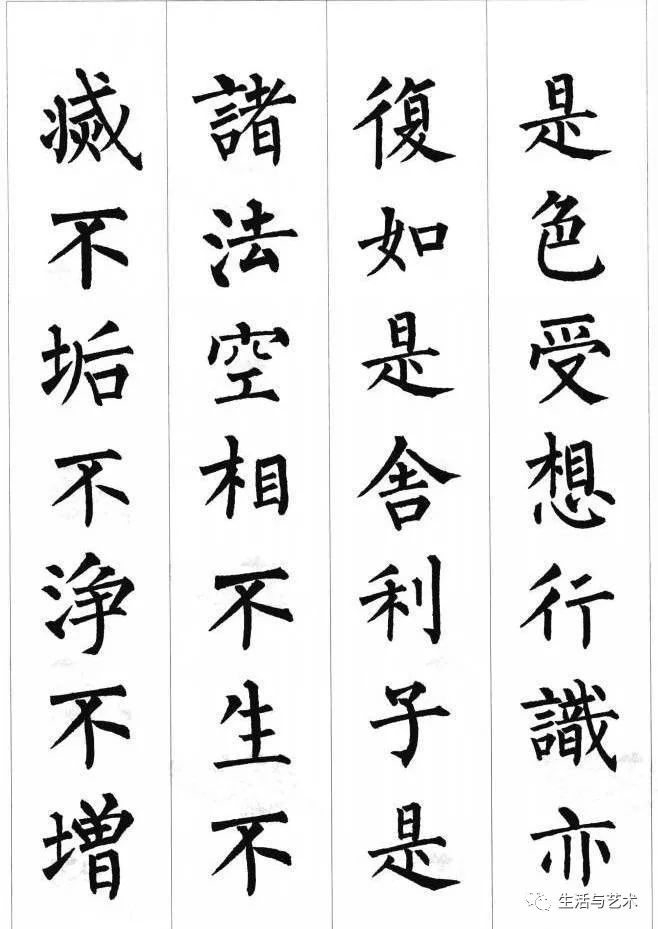 是色受想行識亦
復如是舍利子是
諸法空相不生不
滅不垢不浄不増
生活与艺术